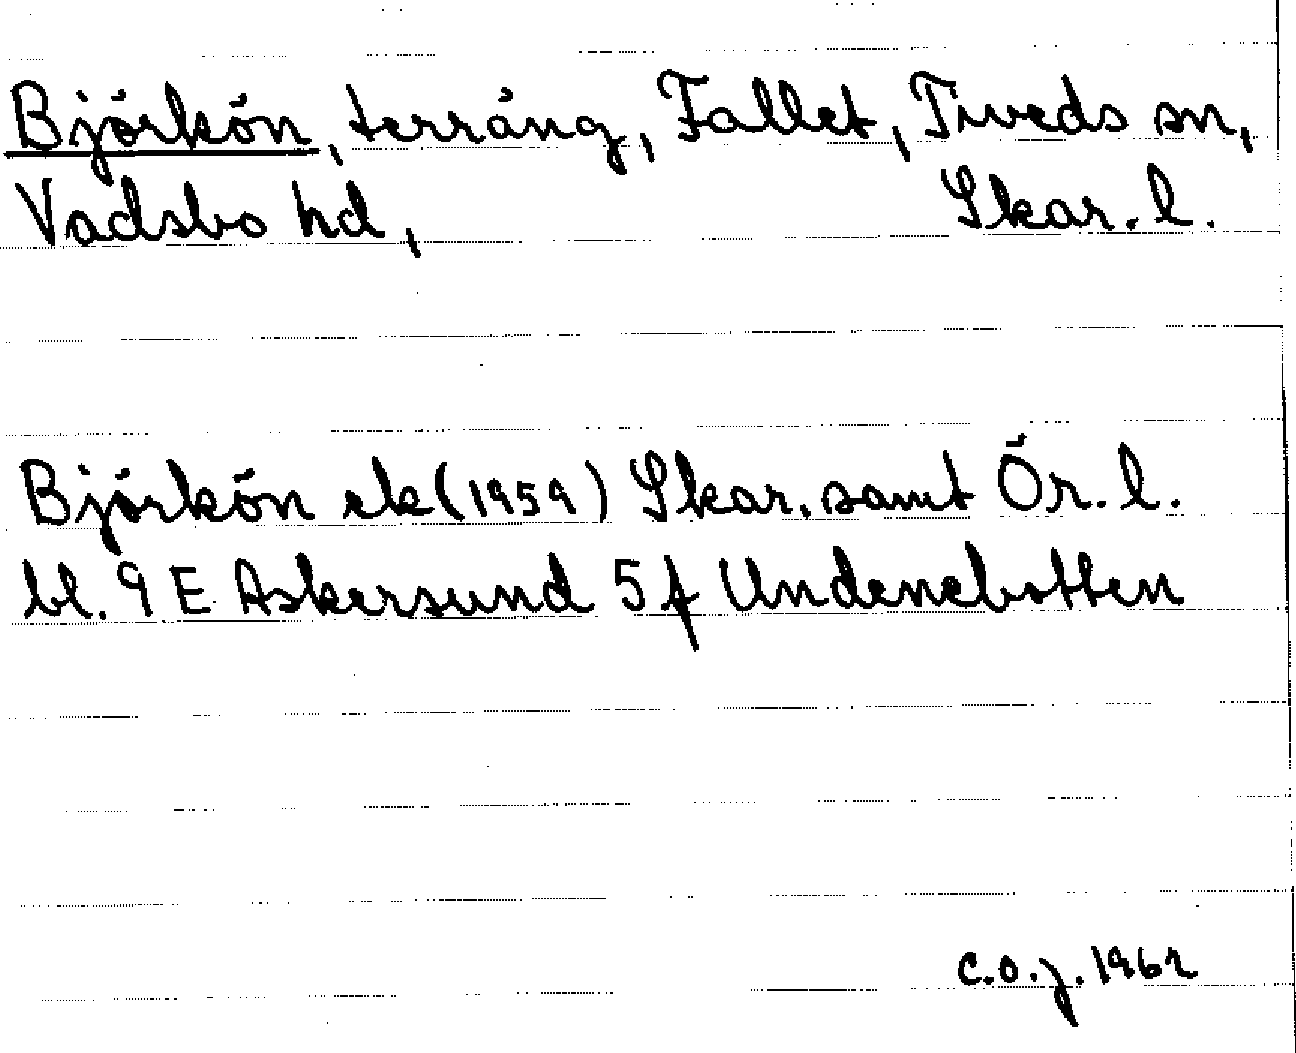 Björkön, terräng, Fallet, Tiveds sn,
Vadsbo hd, Skar. l.
Björkön ek (1959) Skar. samt Ör. l.
bl. 9 E Askersund 5 f Undenebotten
C.O.J. 1962